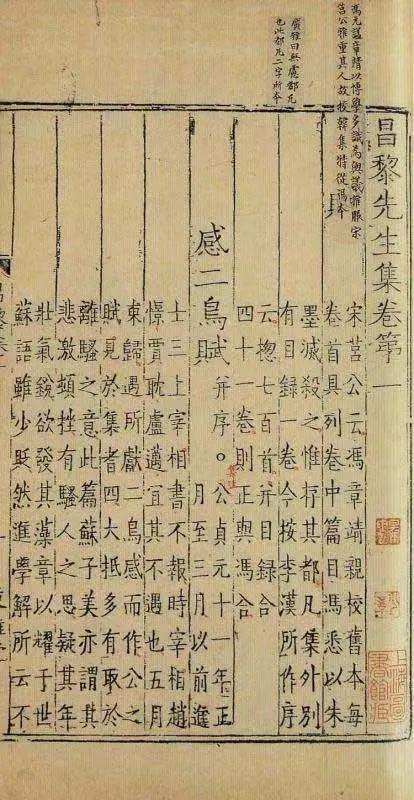 昌黎先生集卷第一
宋莒公云馮章靖親校舊本每
卷首具列卷中篇目馮悉以朱
墨滅殺之惟存其都凡集外別
有目録一卷今按李漢所作序
云揔七百首并目録合
四十一卷則正與馮合
感二鳥賦并序。公貞元十一年正
月至三月以前進
士三上宰相書不報時宰相趙
憬賈耽盧邁宜其不遇也五月
東歸遇所獻二鳥感而作公之
賦見於集者四大抵多有取於
離騷之意此篇蘇子美亦謂其
悲激頓挫有騷人之思疑其年
壯氣鋭欲發其藻章以耀于世
蘇語雖少貶然進學解所云不
馮元謚章靖以博學多識為輿議推服宋
莒公雅重其人故校韓集特從馮本
廣雅曰無慮都凡
也此都凡二字所本